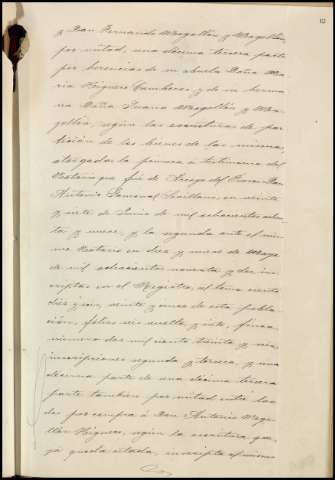 y Don Fernando Magallón y Magallón,
por mitad, una décima tercera parte
por herencias de su abuela Doña Ma
ria Higuero Cambero, y de su herma
na Doña Juana Magallón y Ma
gallón, según las escrituras de par
tición de los bienes de las mismas,
otorgadas la primera á testimonio del
Notario que fué de Don
Antonio Sandoval en veinte
y siete de Junio de mil ochocientos ochen
ta y nueve, y la segunda ante el mis
mo Notario en diez y nueve de Mayo
de mil ochocientos noventa y dos, ins
criptas en el Registro, al tomo ciento
diez y seis, veinte y cinco de esta pobla
ción, folios seis vuelto y siete, finca
número dos mil ciento treinta y seis
inscripciones segunda y tercera, y una
décima parte de una décima tercera
parte tambien por mitad entre los
dos por compra á Don Antonio Maga
llón Higuero, según la escritura que
ya queda citada, inscripta al mismo